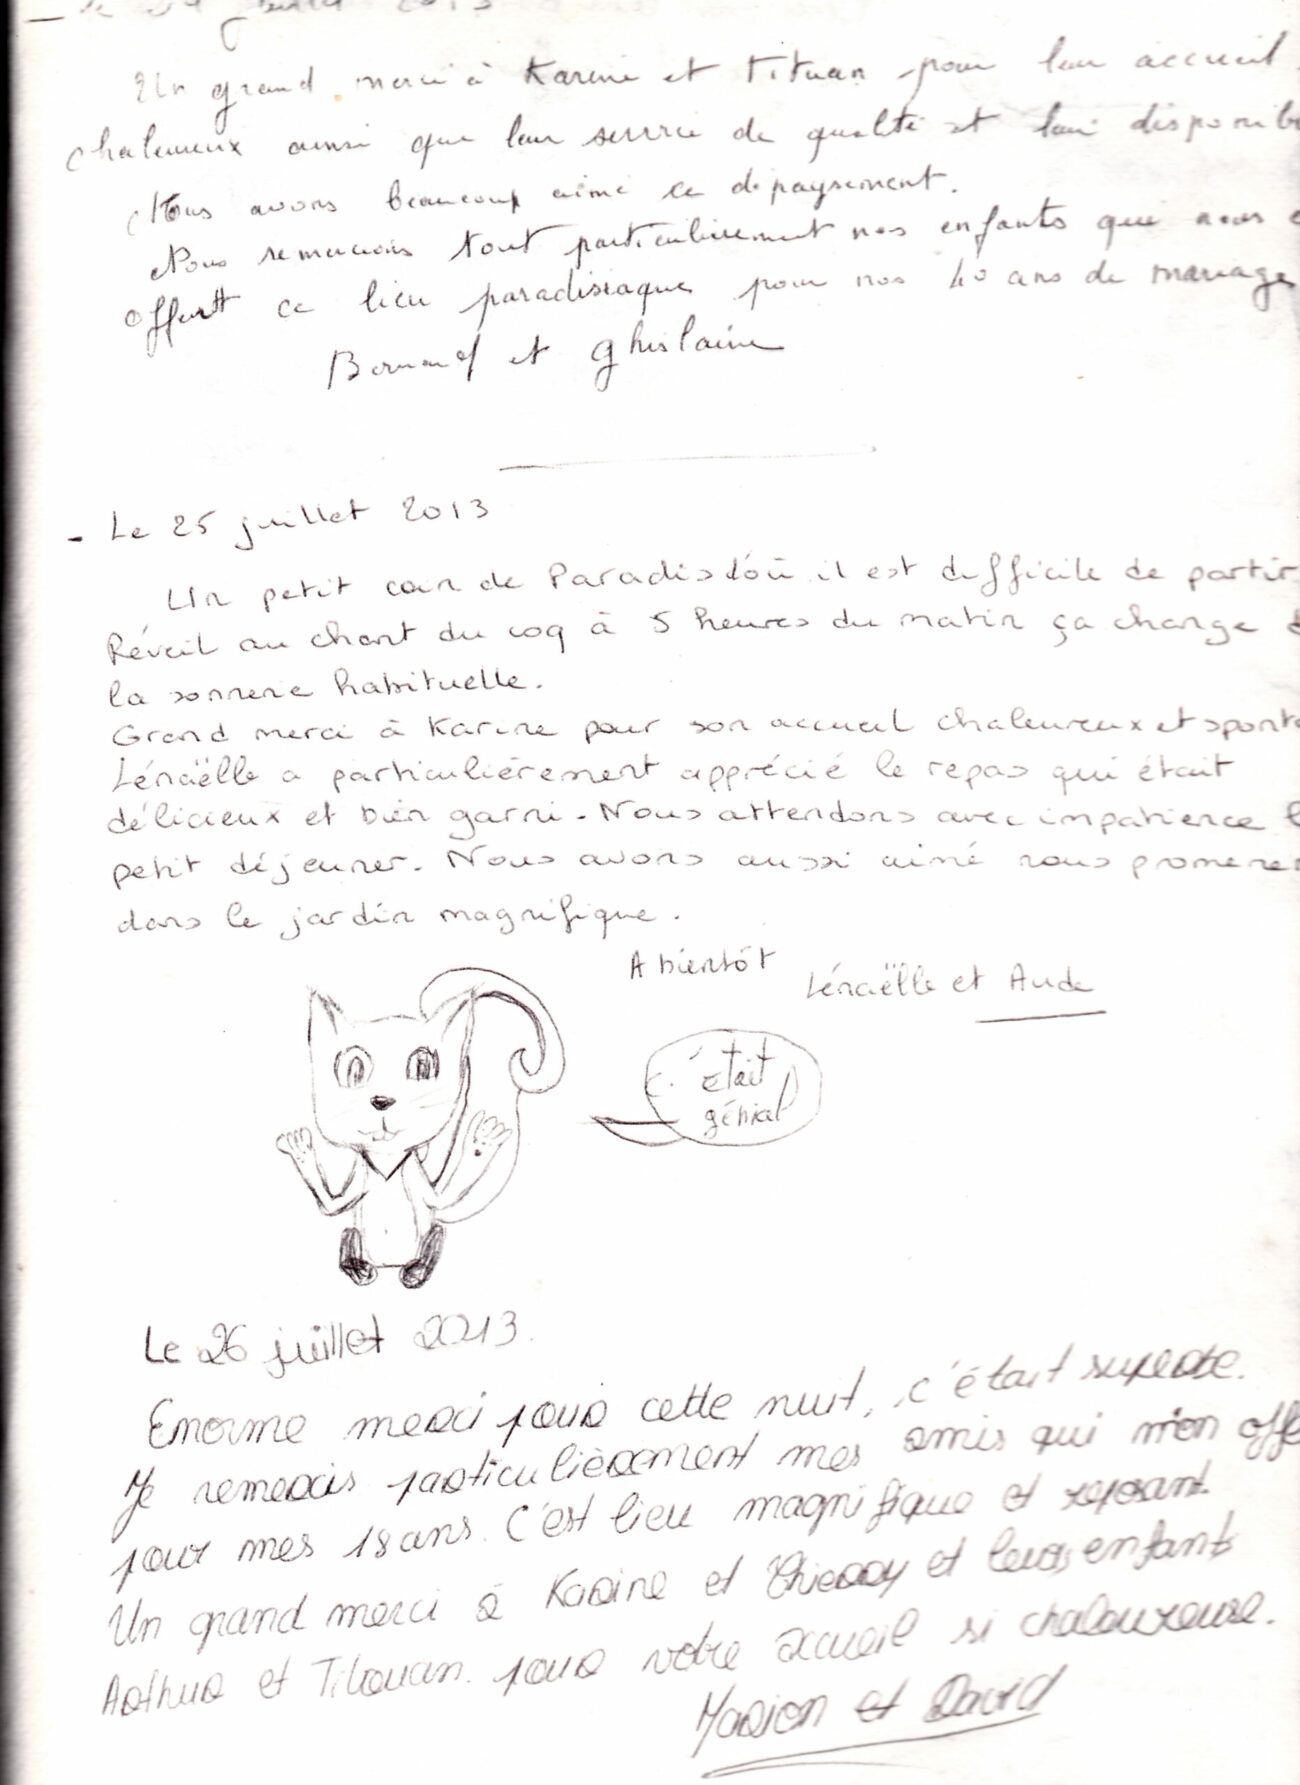 juillet 2013
Un grand merci à Karine et Tituan pour leur accueil
chaleureux ainsi que leur service de qualité et leur disponibi
Nous avons beaucoup aimé ce dépaysement.
Nous remercions tout particulièrement nos enfants qui nous
offert ce lieu paradisiaque pour nos 40 ans de mariage
Bernard et Ghislaine
- Le 25 juillet 2013
Un petit coin de Paradis d'où il est difficile de partir
Réveil au chant du coq à 5 heures du matin ça change d
la sonnerie habituelle.
Grand merci à Karine pour son accueil chaleureux et sponta
Lénaëlle a particulièrement apprécié le repas qui était
délicieux et bien garni. Nous attendons avec impatience l
petit déjeuner. Nous avons aussi aimé nous promener
dans le jardin magnifique.
A bientôt
Lénaëlle et Aude
c'était
génial
Le 26 juillet 2013.
Enorme merci pour cette nuit, c'était superbe.
Je remercis particulièrement mes amis qui m'on offe
pour mes 18 ans. C'est lieu magnifique et reposant.
Un grand merci à Karine et Thierry et leurs enfants
Arthur et Titouan pour votre accueil si chaloureuse.
Marion et David